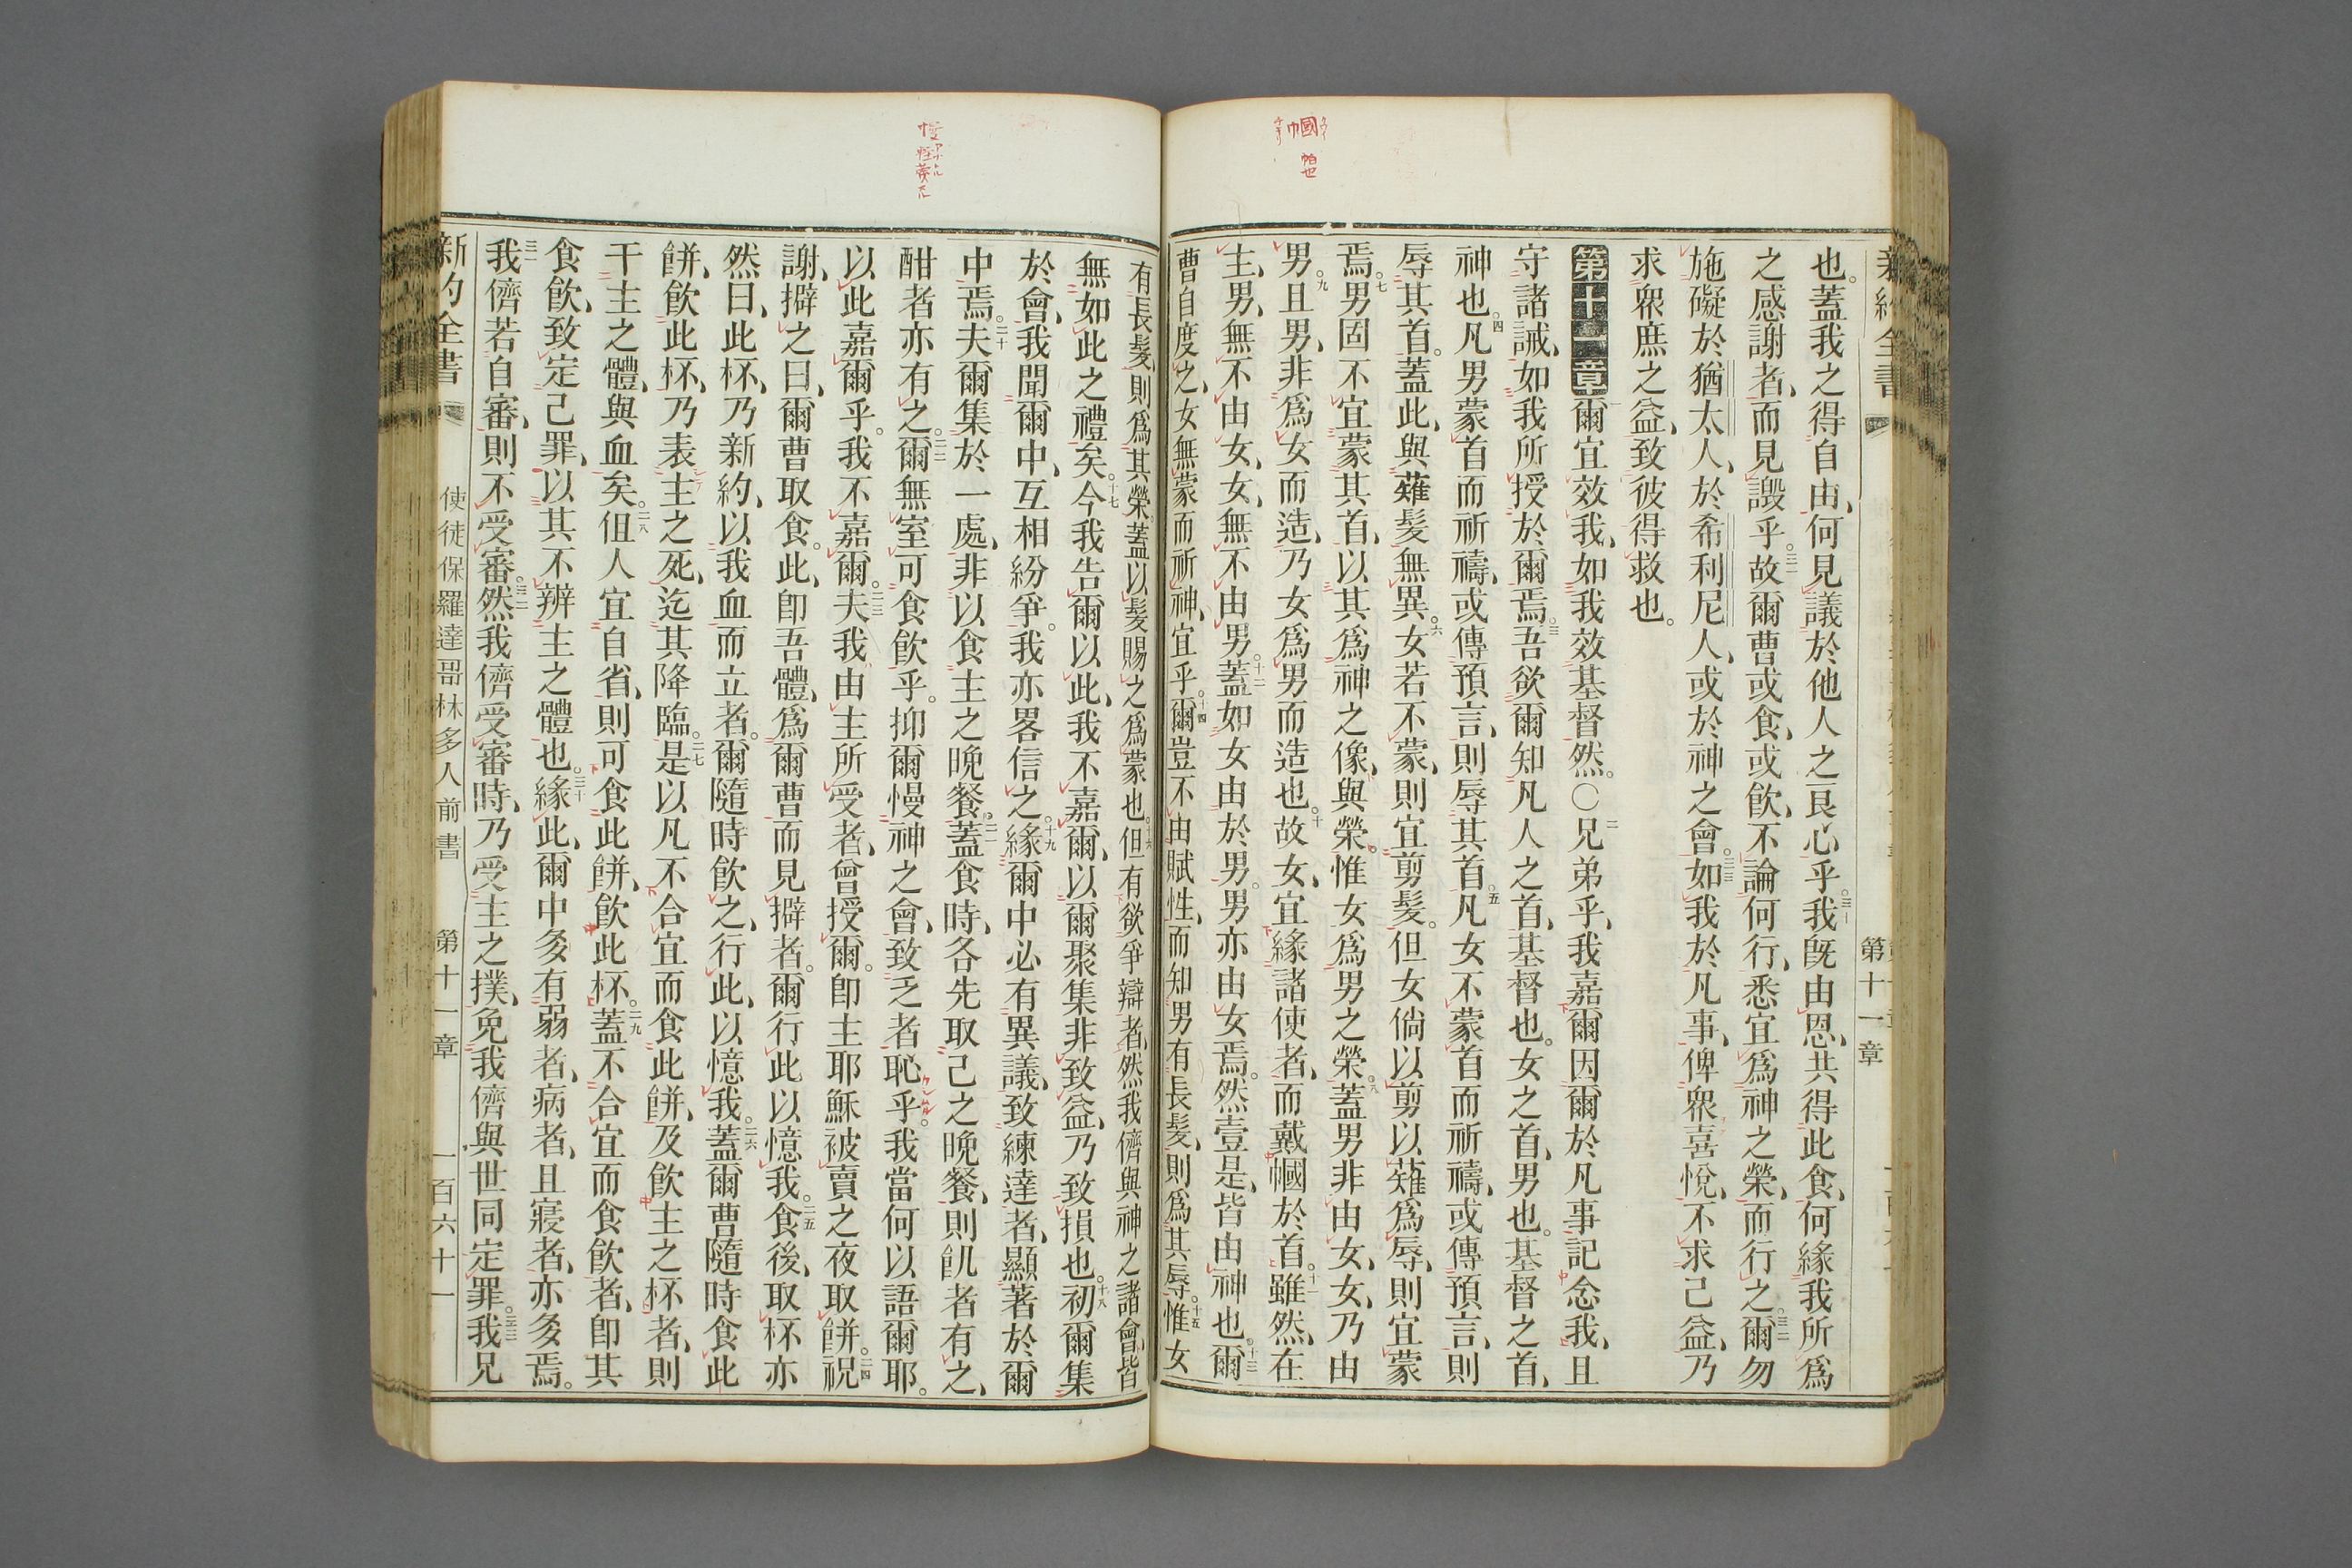 幗
帕也
新約全書
第十一章
也。蓋我之得自由、何見議於他人之良心乎。三十我既由恩、共得此食、何緣我所爲
之感謝者、而見譭乎。三一故爾曹或食、或飲、不論何行、悉宜爲神之榮、而行之。三二爾勿
施礙於猶太人、於希利尼人、或於神之會。三三如我於凡事、俾衆喜悅、不求己益、乃
求衆庶之益、致彼得救也。
第十一章一爾宜效我、如我效基督然。〇二兄弟乎、我嘉爾因爾於凡事記念我、且
守諸誡、如我所授於爾焉。三吾欲爾知凡人之首、基督也。女之首、男也。基督之首、
神也。四凡男蒙首而祈禱、或傳預言、則辱其首。五凡女不蒙首而祈禱、或傳預言、則
辱其首。蓋此、與薙髮無異。六女若不蒙、則宜剪髮。但女倘以剪以薙爲辱、則宜蒙
焉。七男固不宜蒙其首、以其爲神之像、與榮。惟女爲男之榮。八蓋男非由女、女乃由
男。九且男、非爲女而造、乃女爲男而造也。十故女、宜緣諸使者、而戴幗於首。十一雖然、在
主、男、無不由女、女、無不由男。十二蓋如女由於男。男亦由女焉。然壹是、皆由神也。十三爾
曹自度之、女無蒙而祈神、宜乎。十四爾豈不由賦性、而知男有長髮、則爲其辱。十五惟女
有長髮、則爲其榮。蓋以髮賜之爲蒙也。十六但有欲爭辯者、然我儕與神之諸會、皆
無如此之禮矣。十七今我告爾以此、我不嘉爾、以爾聚集非致益、乃致損也。十八初爾集
於會、我聞爾中、互相紛爭。我亦畧信之。十九緣爾中必有異議、致練達者、顯著於爾
中焉。二十夫爾集於一處、非以食主之晚餐。二一蓋食時、各先取己之晚餐、則飢者有之、
酣者亦有之。二二爾無室可食飲乎。抑爾慢神之會、致乏者恥乎。我當何以語爾耶。
以此嘉爾乎。我不嘉爾。二三夫我由主所受者、曾授爾。卽主耶穌被賣之夜取餅。二四祝
謝、擗之曰、爾曹取食。此、卽吾體、爲爾曹而見擗者。爾行此以憶我。二五食後、取杯亦
然曰、此杯、乃新約、以我血而立者。爾隨時飲之、行此、以憶我。二六蓋爾曹隨時食此
餅、飲此杯、乃表主之死、迄其降臨。二七是以凡不合宜而食此餅、及飲主之杯者、則
干主之體、與血矣。二八但人宜自省、則可食此餅、飲此杯。二九蓋不合宜而食飲者、卽其
食飲、致定己罪、以其不辨主之體也。三十緣此、爾中多有弱者、病者、且寢者、亦多焉。
三一我儕若自審、則不受審。三二然我儕受審時、乃受主之撲、免我儕與世同定罪。三三我兄
新約全書
使徒保羅達哥林多人前書
第十一章
一百六十一